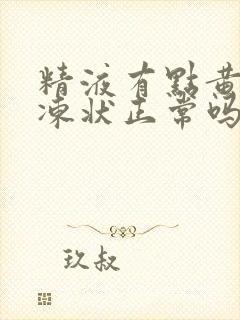 精液有點黄
凍狀正常吗
玖叔